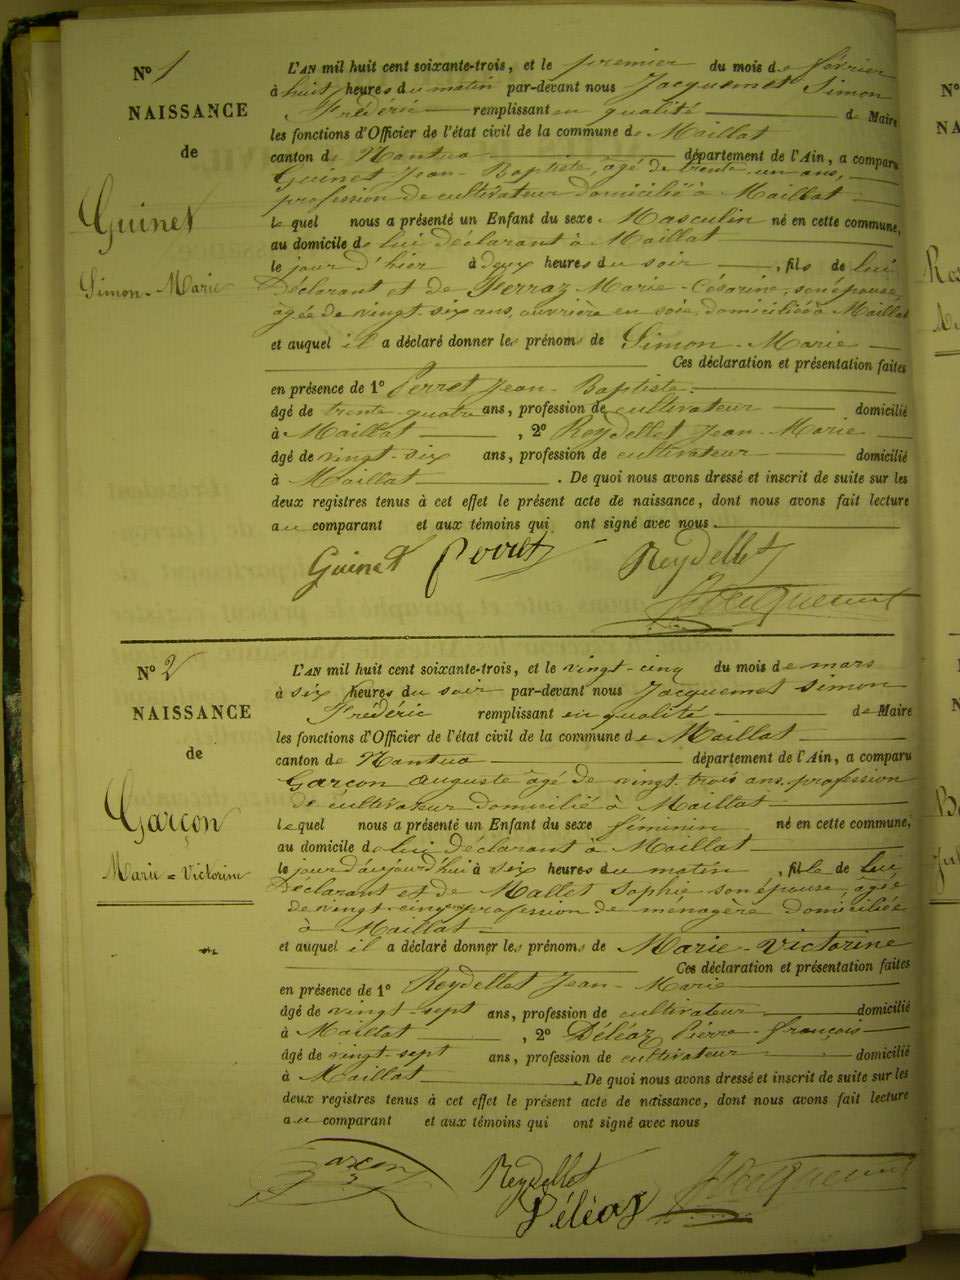 N° 1
NAISSANCE
de
Guinet
Simon-Marie
L'AN mil huit cent soixante-trois, et le premier du mois de février
à huit heures du matin par-devant nous Jacquemet Simon
Frédéric remplissant en qualité de Maire
les fonctions d'Officier de l'état civil de la commune de Maillat
canton de Nantua département de l'Ain, a comparu
Guinet Jean-Baptiste, âgé de trente-un ans,
profession de cultivateur domicilié à Maillat
lequel nous a présenté un Enfant du sexe Masculin né en cette commune,
au domicile de lui déclarant à Maillat
le jour d'hier à deux heures du soir, fils de lui
Déclarant et de Perraz Marie-Césarine, son épouse,
âgée de vingt-six ans, ouvrière en soie, domiciliée à Maillat
et auquel il a déclaré donner les prénoms de Simon-Marie
Ces déclaration et présentation faites
en présence de 1° Perret Jean-Baptiste
âgé de trente-quatre ans, profession de cultivateur domicilié
à Maillat, 2° Reydellet Jean-Marie
âgé de vingt-six ans, profession de cultivateur domicilié
à Maillat. De quoi nous avons dressé et inscrit de suite sur les
deux registres tenus à cet effet le présent acte de naissance, dont nous avons fait lecture
au comparant et aux témoins qui ont signé avec nous.
Guinet Perret Reydellet
Jacquemet
N° 2
NAISSANCE
de
Garçon
Marie-Victorine
L'AN mil huit cent soixante-trois, et le vingt-cinq du mois de mars
à six heures du soir par-devant nous Jacquemet Simon
Frédéric remplissant en qualité de Maire
les fonctions d'Officier de l'état civil de la commune de Maillat
canton de Nantua département de l'Ain, a comparu
Garçon Auguste âgé de vingt-trois ans, profession
de cultivateur domicilié à Maillat
lequel nous a présenté un Enfant du sexe féminin né en cette commune,
au domicile de lui déclarant à Maillat
le jour d'aujourd'hui à six heures du matin, fille de lui
Déclarant et de Mallet Sophie son épouse, âgée
de vingt-cinq ans profession de ménagère domiciliée
à Maillat
et auquel il a déclaré donner les prénoms de Marie-Victorine
Ces déclaration et présentation faites
en présence de 1° Reydellet Jean-Marie
âgé de vingt-sept ans, profession de cultivateur domicilié
à Maillat, 2° Déléaz Pierre-françois
âgé de vingt-sept ans, profession de cultivateur domicilié
à Maillat. De quoi nous avons dressé et inscrit de suite sur les
deux registres tenus à cet effet le présent acte de naissance, dont nous avons fait lecture
au comparant et aux témoins qui ont signé avec nous
Garçon Reydellet Jacquemet
Déléaz